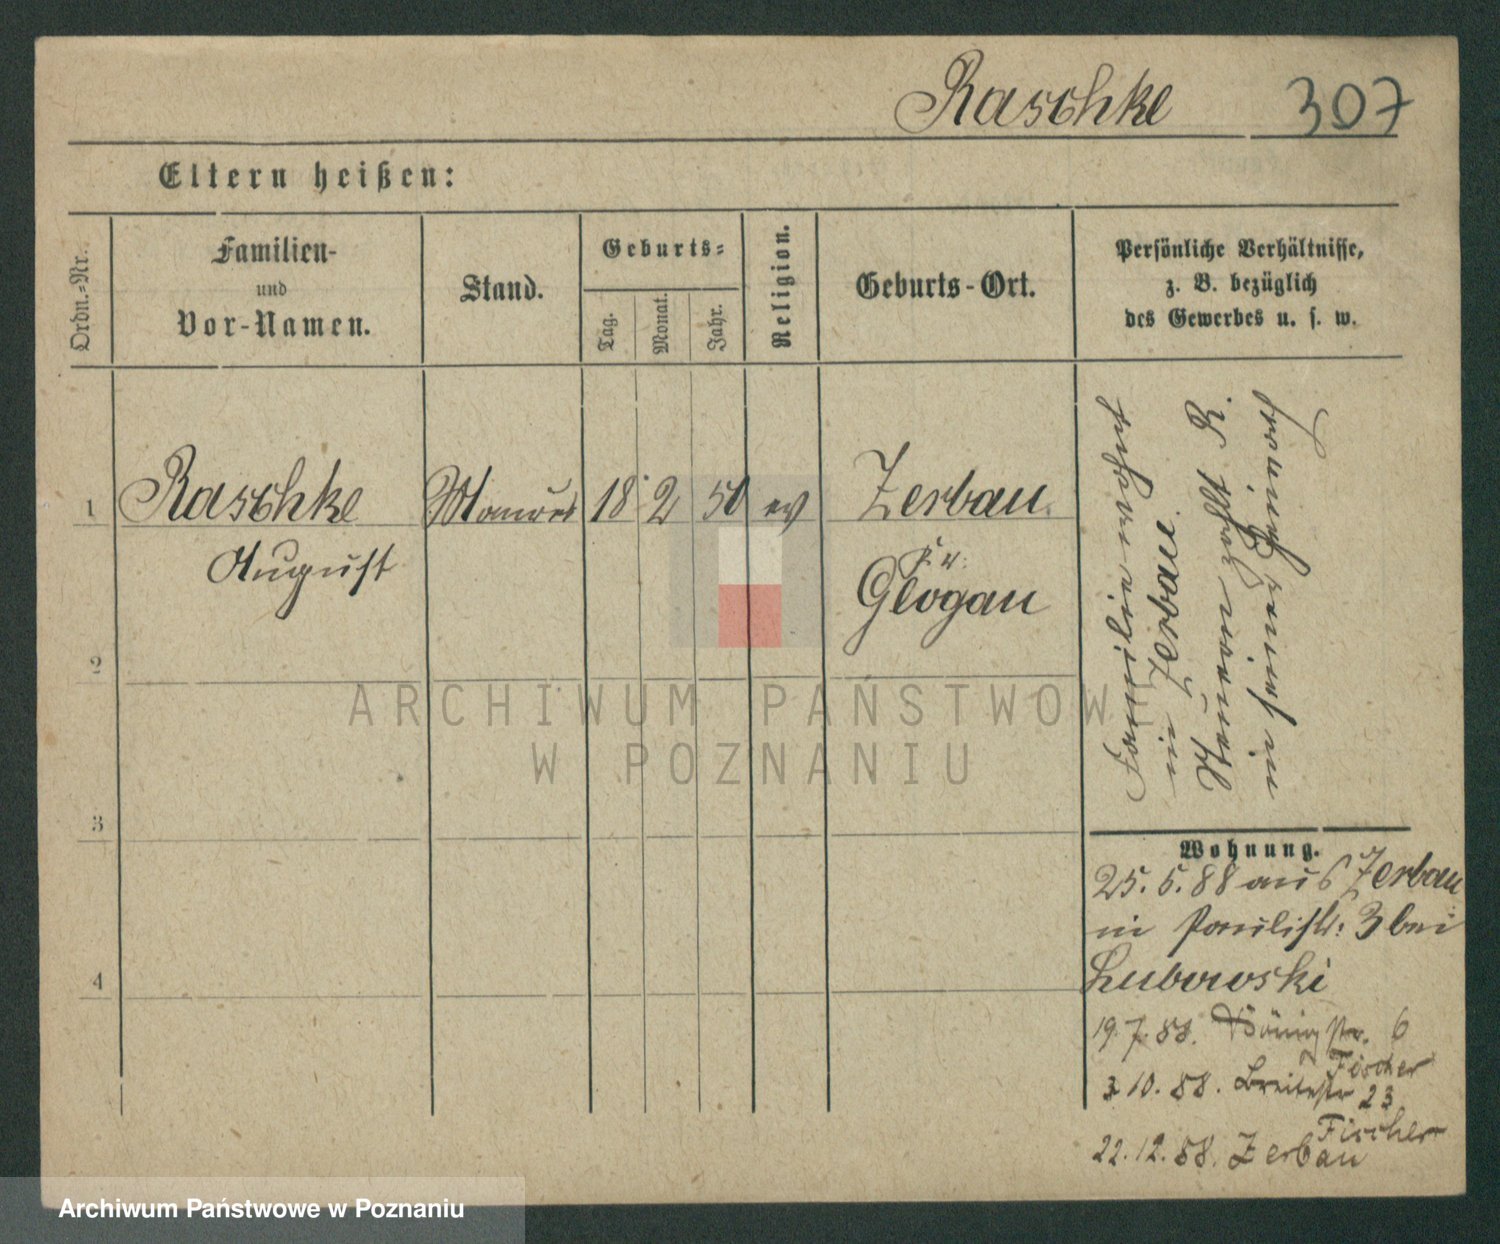 Raschke 307
Eltern heißen:
Ordn.-Nr.
Familien-
und
Vor-Namen.
Stand.
Geburts-
Tag.
Monat.
Jahr.
Religion.
Geburts-Ort.
Persönliche Verhältnisse,
z. B. bezüglich
des Gewerbes u. s. w.
1 Raschke Maurer 18 2 50 ev Zerbau
August
Kr.
Glogau
2
3
4
Familie wohnt
in Zerbau.
Steuern zahlt R.
in seiner
Wohnung.
25. 5. 88 aus Zerbau
in Paulistr: 3 bei
Lubowski
19. 7. 88. str. 6
Fischer
3 10. 88. Breitestr 23
Fischer
22. 12. 88. Zerbau
ARCHIWUM PAŃSTWOWE
W POZNANIU
Archiwum Państwowe w Poznaniu